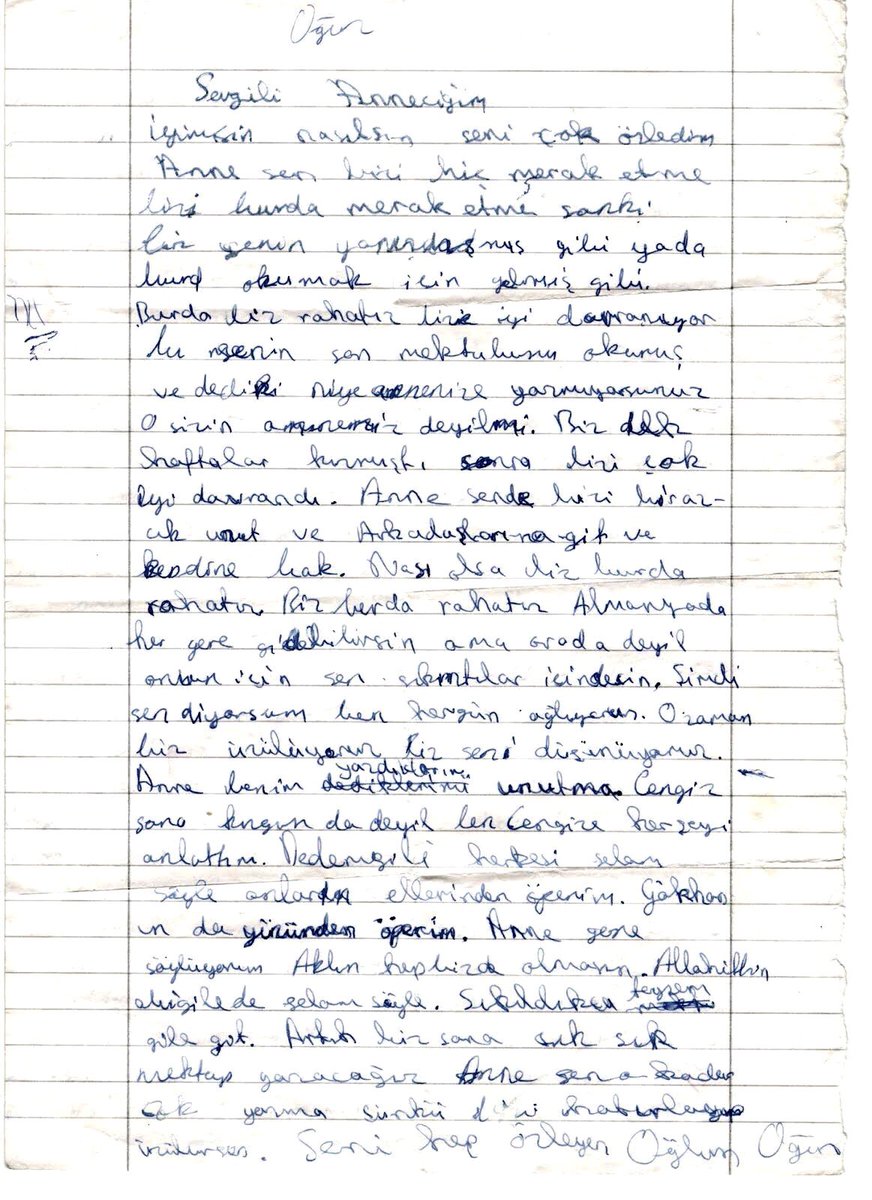 Oğuz
Sevgili Anneciğim
iyimisin nasılsın seni çok özledim
Anne sen bizi hiç merak etme
bizi burda merak etme sanki
biz senin yanındaymış gibi yada
burd okumak için gelmiş gibi.
Burda biz rahatız bize iyi davranıyor
bu senin son mektubunu okumuş
ve dediki niye annenize yazmıyorsunuz
O sizin anneniz deyilmi. Biz
haftalar kızmıştı sonra bizi çok
iyi davrandı. Anne sende bizi biraz-
cık unut ve Arkadaşlarına git ve
kendine bak. Nası olsa biz burda
rahatız. Biz burda rahatız Almanyada
her yere gidebilirsin ama orada deyil
onun için sen sıkıntılar içindesin. Simdi
sen diyorsum ben hergün ağlıyorum. O zaman
biz üzülüyoruz biz seni düşünüyoruz.
Anne benim yazdıklarımı unutma. Cengiz
sana kızgın da deyil ben Cengize herşeyi
anlattım. Dedemgili herkesi selam
söyle onların ellerinden öperim. Gökhan
ın da yüzünden öperim. Anne gene
söylüyorum Aklın hep bizde olmasın.
abigile de selam söyle. Sıkıldıkca teyzem
gile git. Artık biz sana sık sık
mektup yazacağız Anne sen o kadar
çok yazma sünkü hatırlayıp
üzülürsen. Seni hep özleyen Oğlun Oğuz